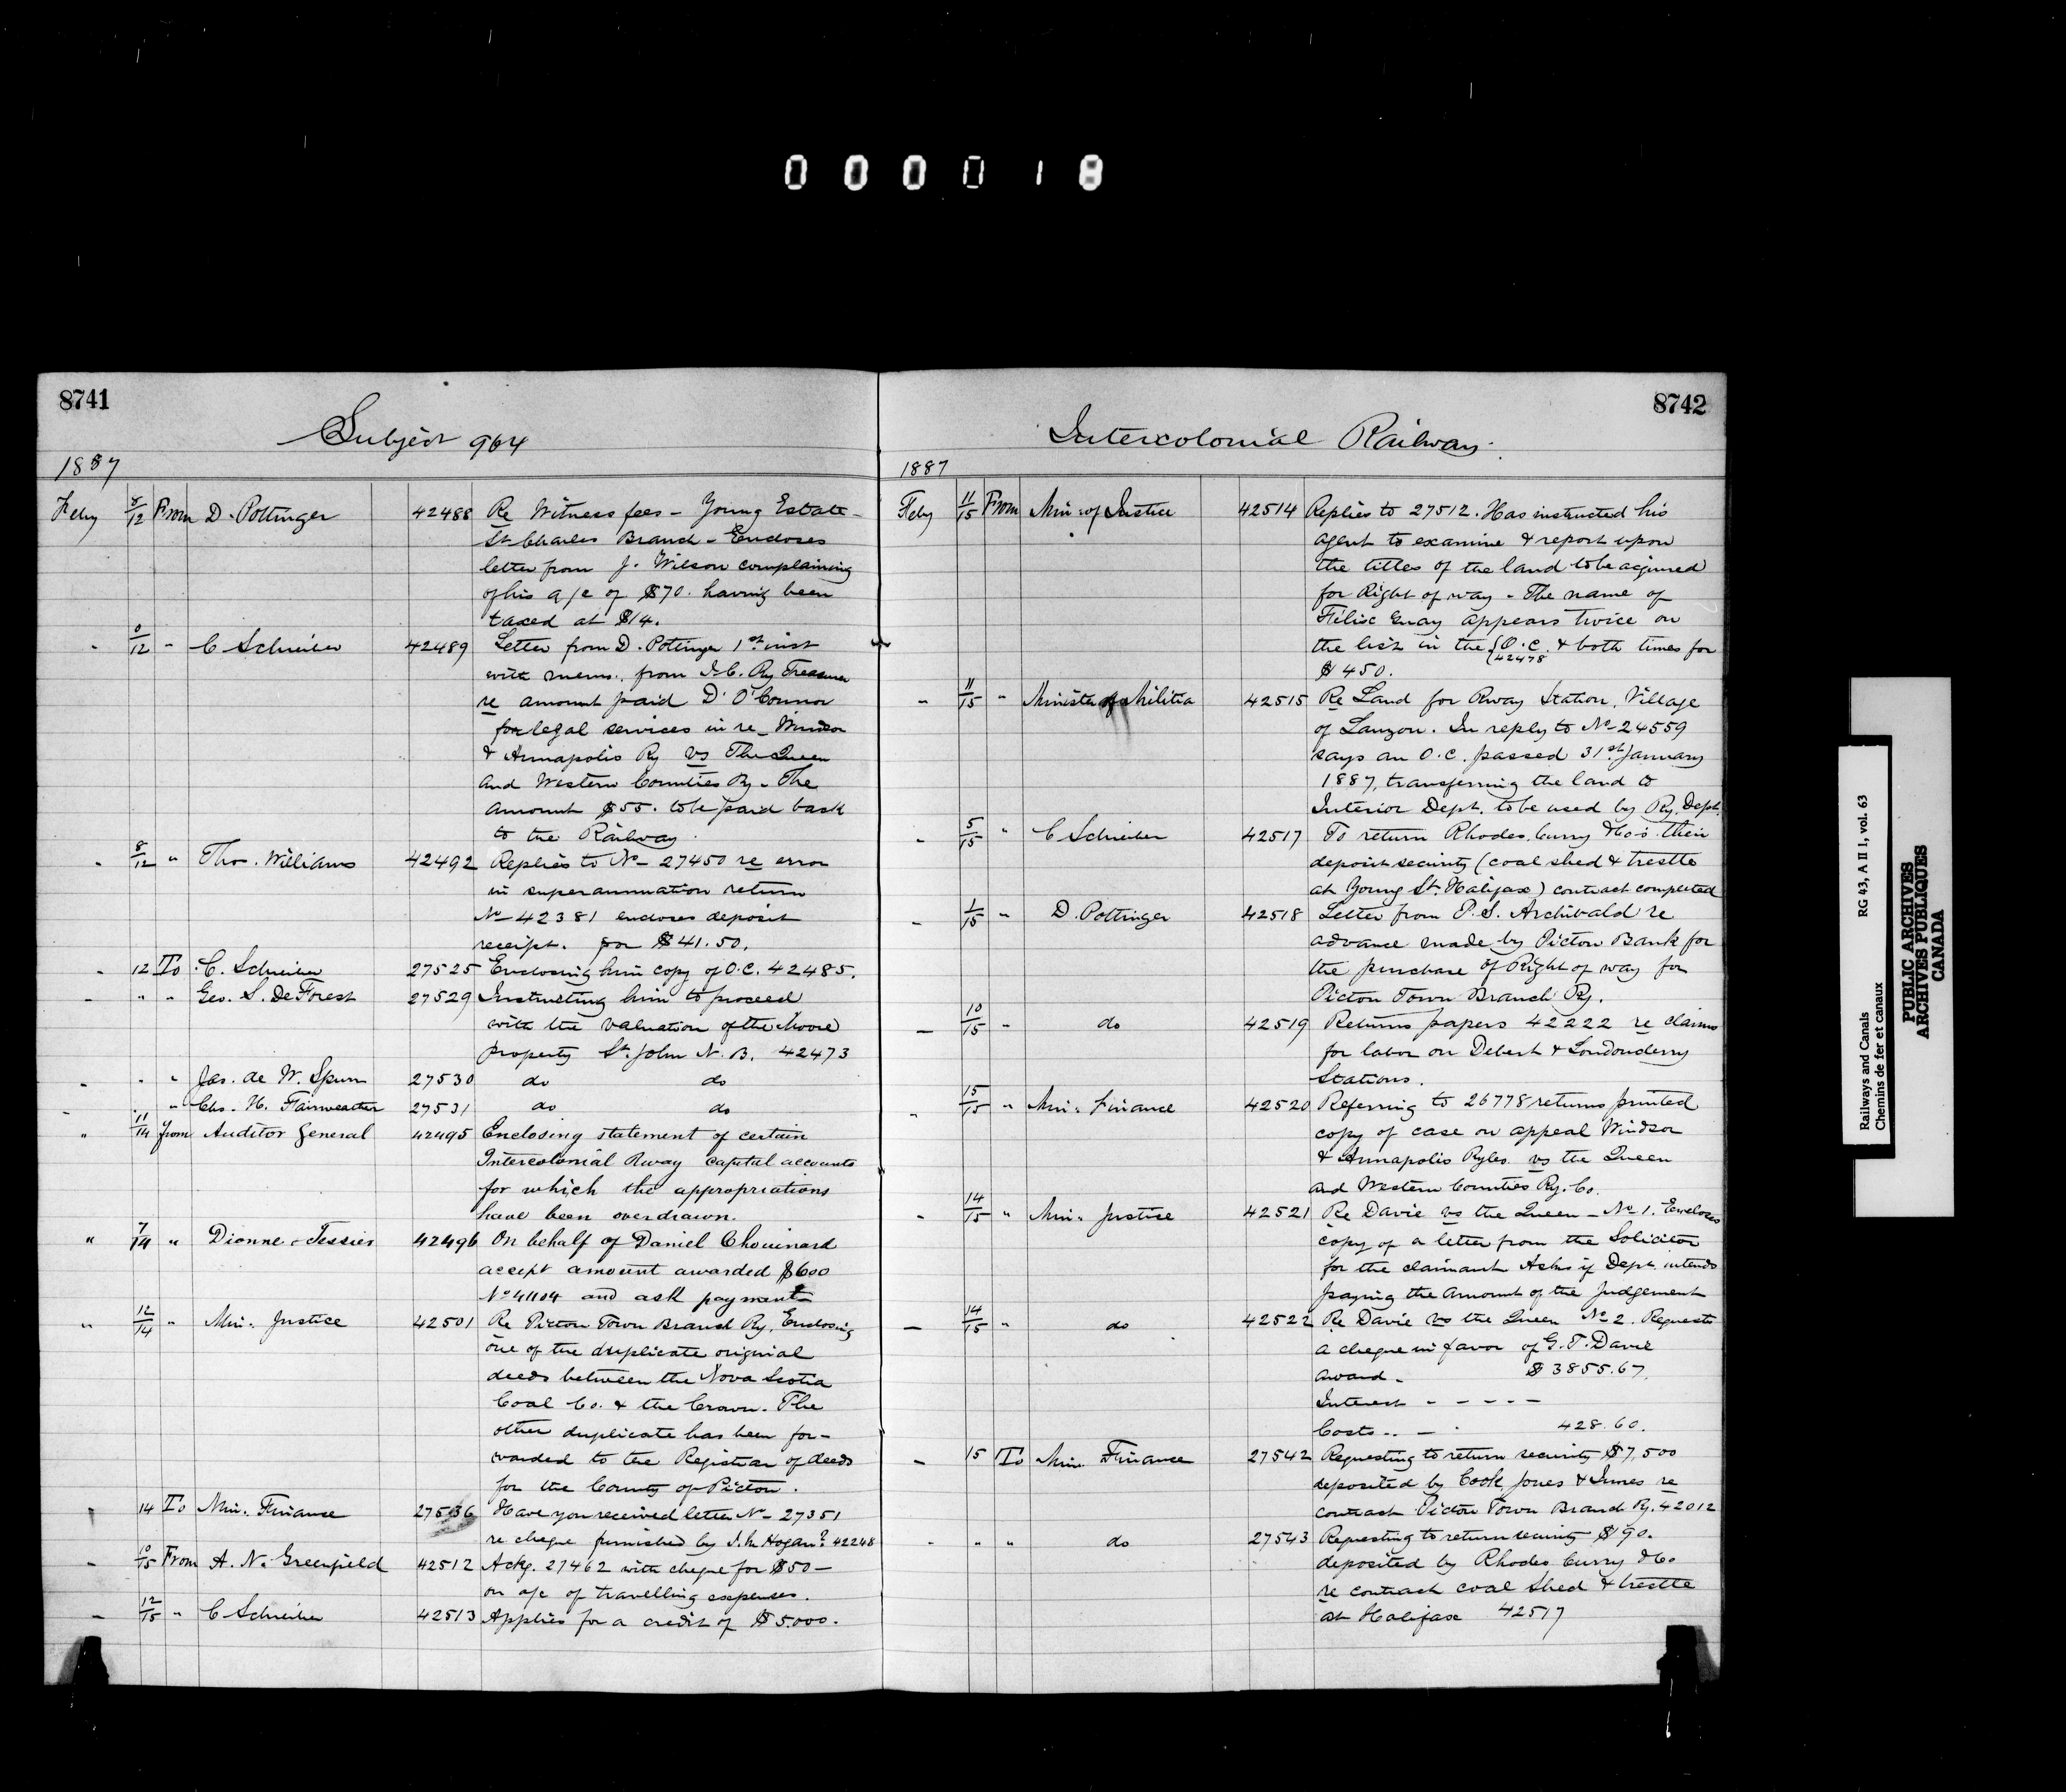 000018
8741
Subject 964
1887
Feby 8/12 From D. Pottinger 42488 Re Witness fees - Young Estate -
St Charles Branch - Encloses
letter from J. Wilson complaining
of his a/c of $70. having been
taxed at $14.
" /12 " C Schreiber 42489 Letter from D. Pottinger 1st inst
with mem. from I.C. Ry Treasurer
re amount paid D O'Connor
for legal services in re Windsor
& Annapolis Ry vs The Queen
and Western Counties Ry - The
amount $55. to be paid back
to the Railway.
" 8/12 " Thos. Williams 42492 Replies to No 27450 re error
in superannuation return
No 42381 encloses deposit
receipt. for $41.50.
" 12 To C. Schreiber 27525 Enclosing him copy of O.C. 42485.
" " " Geo. S. DeForest 27529 Instructing him to proceed
with the valuation of the Moore
property St. John N.B. 42473
" " " Jas. de W. Spurr 27530 do do
" " " Chs. H. Fairweather 27531 do do
" 11/14 from Auditor General 42495 Enclosing statement of certain
Intercolonial Rway capital accounts
for which the appropriations
have been overdrawn.
" 7/14 " Dionne & Tessier 42496 On behalf of Daniel Chouinard
accept amount awarded $600
No 41104 and ask payment
" 12/14 " Min. Justice 42501 Re Pictou Town Branch Ry. Enclosing
one of the duplicate original
deeds between the Nova Scotia
Coal Co. & the Crown. The
other duplicate has been for-
warded to the Registrar of deeds
for the County of Pictou.
" 14 To Min. Finance 27536 Have you received letter No 27351
re cheque furnished by Hogan? 42248
" 10/15 From A. N. Greenfield 42512 Ackg. 27462 with cheque for $50 -
on a/c of travelling expenses.
" 12/15 " C Schreiber 42513 Applies for a credit of $5.000.
8742
Intercolonial Railway.
1887
Feby 11/15 From Min. of Justice 42514 Replies to 27512. Has instructed his
agent to examine & report upon
the titles of the land to be acquired
for Right of way - The name of
Félix Guay appears twice on
the list in the O.C. & both times for
(42478
$450.
" 11/15 " Minister of Militia 42515 Re Land for Rway Station, Village
of Lauzon. In reply to No 24559
says an O.C. passed 31st January
1887, transferring the land to
Interior Dept. to be used by Ry. Dept.
" 5/15 " C Schreiber 42517 To return Rhodes, Curry & Co's their
deposit security (coal shed & trestle
at Young St. Halifax) contract completed
" 1/15 " D. Pottinger 42518 Letter from P.S. Archibald re
advance made by Pictou Bank for
the purchase of Right of way for
Pictou Town Branch Ry.
" 10/15 " do 42519 Returns papers 42222 re claims
for labor on Debert & Londonderry
Stations.
" 15/15 " Min. Finance 42520 Referring to 26778 returns printed
copy of case on appeal Windsor
& Annapolis Rylwy. vs the Queen
and Western Counties Ry. Co.
" 14/15 " Min. Justice 42521 Re Davie vs the Queen - No 1. Encloses
copy of a letter from the Solicitor
for the claimant Asks if Dept. intends
paying the amount of the Judgement
" 14/15 " do 42522 Re Davie vs the Queen No 2. Requests
a cheque in favor of G.T. Davie
Award - $3855.67.
Interest - - - - -
Costs - - - 428.60.
" 15 To Min. Finance 27542 Requesting to return security $7,500
deposited by Cook, Jones & Innes re
contract Pictou Town Branch Ry. 42012
" " " do 27543 Requesting to return security $190.
deposited by Rhodes Curry & Co
re contract coal shed & trestle
at Halifax 42517
Railways and Canals
Chemins de fer et canaux
RG 43, A II 1, vol. 63
PUBLIC ARCHIVES
ARCHIVES PUBLIQUES
CANADA